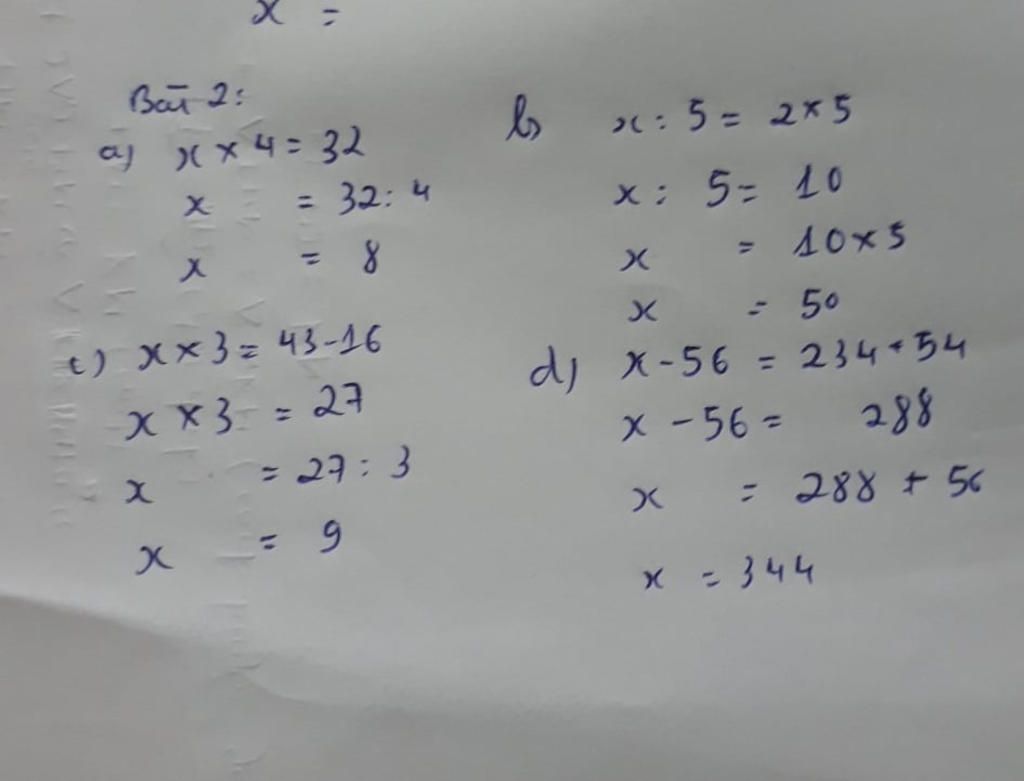 x =
Bài 2:
a) x × 4 = 32
x = 32 : 4
x = 8
b) x : 5 = 2 × 5
x : 5 = 10
x = 10 × 5
x = 50
c) x × 3 = 43 - 16
x × 3 = 27
x = 27 : 3
x = 9
d) x - 56 = 234 + 54
x - 56 = 288
x = 288 + 56
x = 344